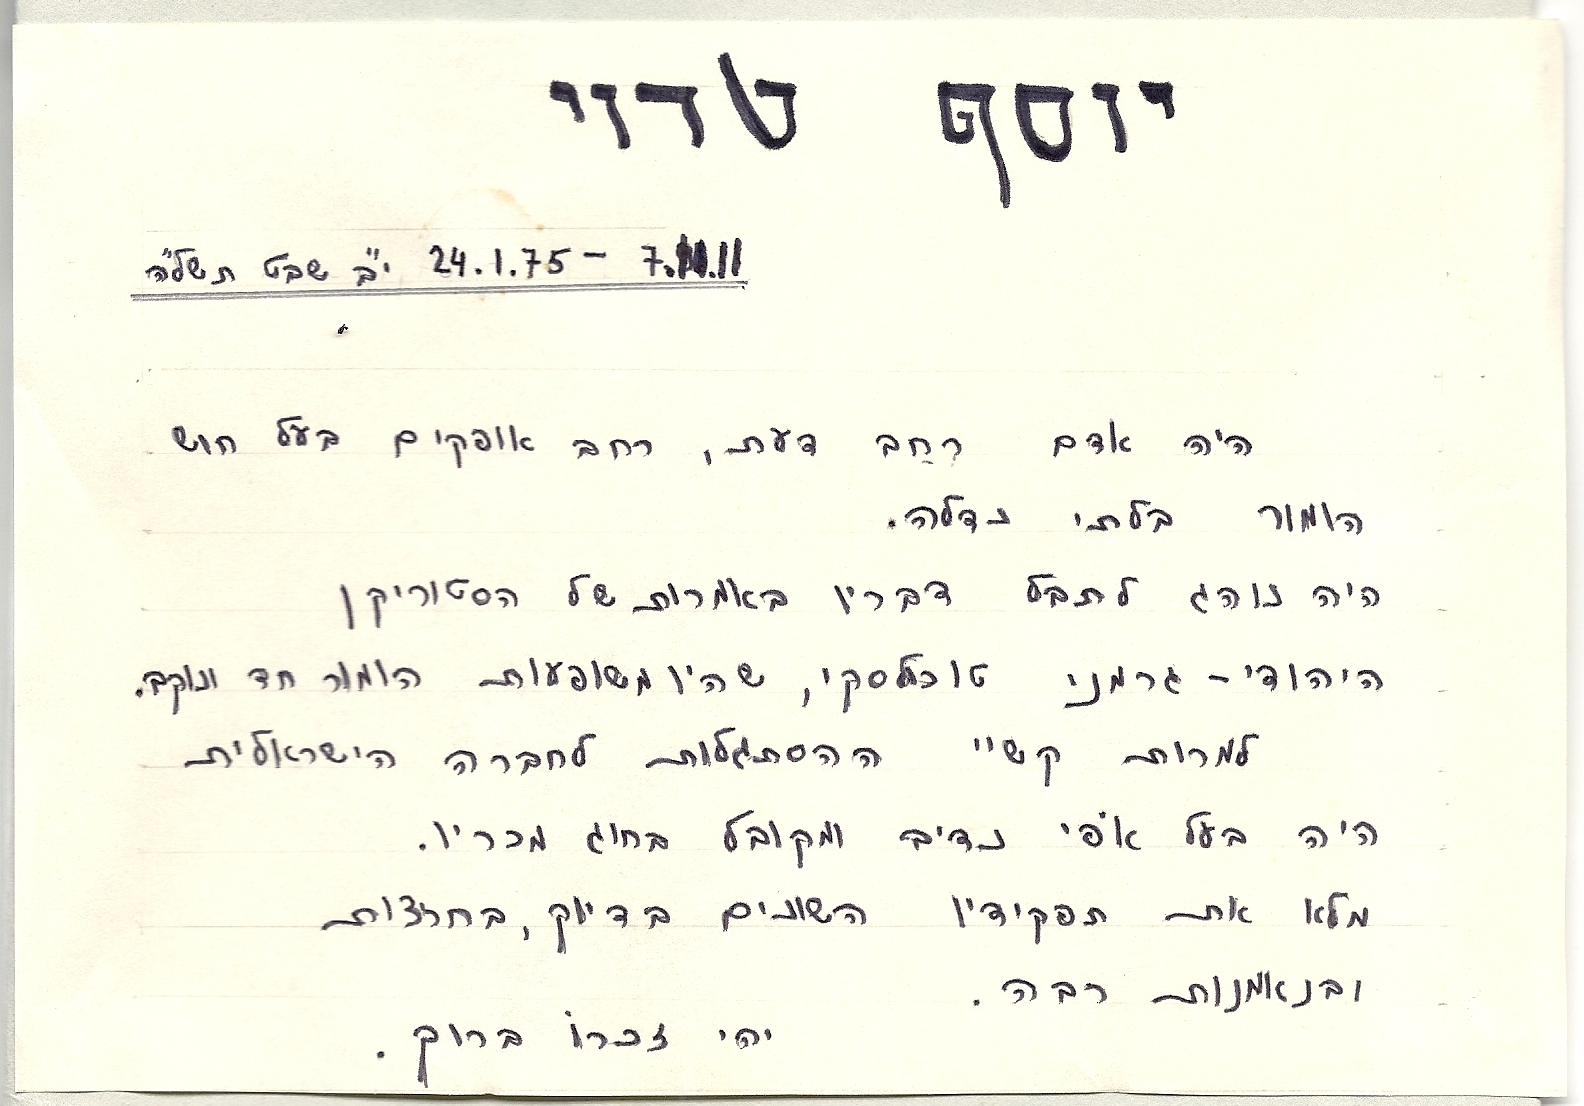 יוסף טרוי
24.1.75 י"ב שבט תשל"ה
היה אדם רְחַב דעת, רחב אופקים בעל חוש
הומור בלתי נדלה.
היה נוהג לתבל דבריו באמרות של הסטוריקן
היהודי-גרמני טוכולסקי, שהיו משופעות הומור חד ונוקב.
למרות קשיי ההסתגלות לחברה הישראלית
היה בעל אֹפי נדיב ומקובל בחוג מכריו.
מלא את תפקידיו השונים בדיוק, בחרצות
ובנאמנות רבה.
יהי זכרוֹ ברוך.